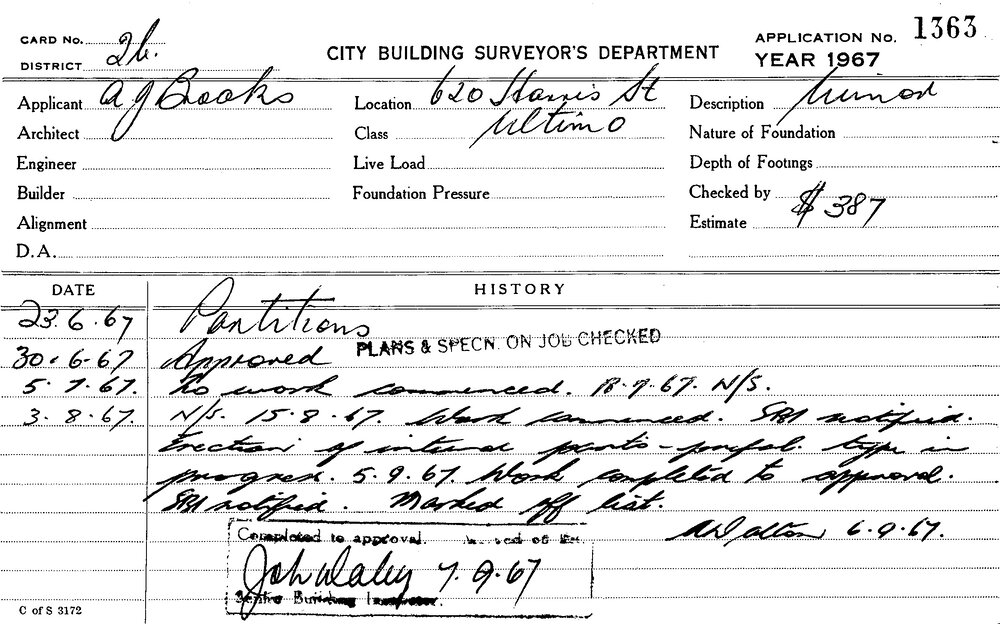 CARD No. 26.
DISTRICT
CITY BUILDING SURVEYOR'S DEPARTMENT
APPLICATION No. 1363
YEAR 1967
Applicant A J Brooks
Location 620 Harris St
Description Minor
Architect
Class Ultimo
Nature of Foundation
Engineer
Live Load
Depth of Footings
Builder
Foundation Pressure
Checked by
Alignment
Estimate $ 387
D.A.
DATE HISTORY
23.6.67 Partitions
30.6.67 Approved PLANS & SPECN. ON JOB CHECKED
5.7.67. No work commenced. 18.7.67. N/S.
3.8.67. N/S. 15.8.67. Work commenced. SBI notified.
Erection of internal parts - prefab. type in
progress. 5.9.67. Work completed to approval.
SBI notified. Marked off list.
6.9.67.
Completed to approval.
John Daley 7.9.67
Senior Building Inspector.
C of S 3172